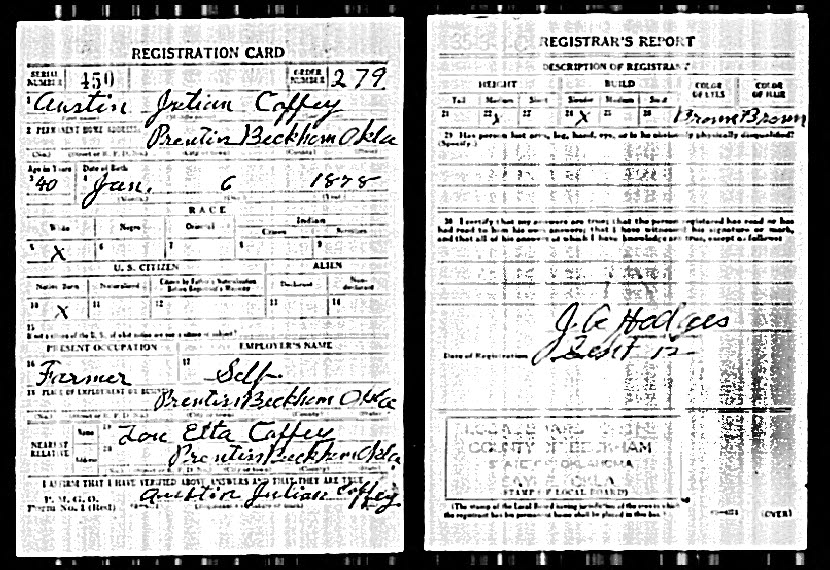 REGISTRATION CARD
SERIAL NUMBER 450 ORDER NUMBER 279
1 Austin Julian Coffey
2 PERMANENT HOME ADDRESS
Prentiss Beckham Okla
Age in Years Date of Birth
3 40 4 Jan. 6 1878
RACE
White Negro Oriental Indian
Citizen
5 X 6 7 8 9
U. S. CITIZEN ALIEN
Native Born Naturalized Declared Non-declared
10 X 11 12 13 14
15
PRESENT OCCUPATION EMPLOYER'S NAME
16 Farmer 17 Self
18 PLACE OF EMPLOYMENT OR BUSINESS
Prentiss Beckham Okla
NEAREST RELATIVE
Name 19 Lou Etta Coffey
Address 20 Prentiss Beckham Okla
I AFFIRM THAT I HAVE VERIFIED ABOVE ANSWERS AND THAT THEY ARE TRUE
P. M. G. O.
Form No. 1 (Red) Austin Julian Coffey
REGISTRAR'S REPORT
DESCRIPTION OF REGISTRANT
HEIGHT BUILD COLOR OF EYES COLOR OF HAIR
Tall Medium Short Slender Medium Short
21 22 X 23 24 X 25 26 Brown Brown
29 Has person lost arm, leg, hand, eye, or is he obviously physically disqualified?
(Specify.)
30 I certify that my answers are true; that the person registered has read or has
had read to him his own answers; that I have witnessed his signature or mark,
and that all of his answers of which I have knowledge are true, except as follows:
J. A. Hodges
Date of Registration Sept 12
COUNTY OF BECKHAM
STATE OF OKLAHOMA
OKLA
(STAMP OF LOCAL BOARD)
(The stamp of the Local Board having jurisdiction of the area in which
the registrant has his permanent home shall be placed in this box.)
(OVER)